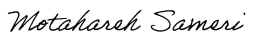 Motahareh Sameri